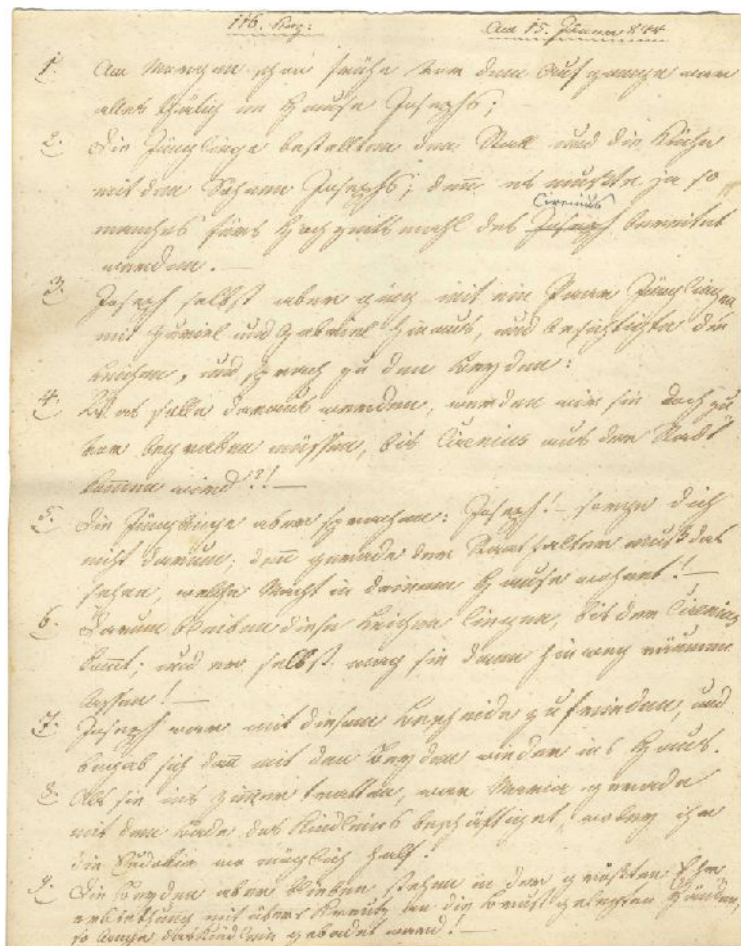 116. Kap: Am 15. Jänner 844
1. Am Morgen schon frühe vor dem Aufgange war
alles thätig im Hause Josephs;
2. Die Jünglinge bestellten den Stall und die Küche
mit den Söhnen Josephs; denn es mußte ja so
manches fürs Hochzeitsmahl des Joseph Cirenius bereitet
werden. —
3. Joseph selbst aber ging mit ein Paar Jünglingen
mit Zuriel und Gabriel hinaus, und besichtigte die
Leichen, und sprach zu den Beyden:
4. Was solle daraus werden, werden wir sie doch zu
vor begraben müssen, bis Cirenius aus der Stadt
kommen wird?! —
5. Die Jünglinge aber sprachen: Joseph! — sorge dich
nicht darum; denn gerade der Statthalter muß das
sehen, welche Macht in deinem Hause wohnet! —
6. Darum bleiben diese Leichen liegen, bis der Cirenius
kommt; und er selbst mag sie dann hinweg räumen
lassen! —
7. Joseph war mit diesem Bescheide zufrieden, und
begab sich dann mit den Beyden wieder ins Haus.
8. Als sie ins Zimmer tratten, war Maria gerade
mit dem Bade des Kindleins beschäftiget, wobey ihr
die Eudokia wo möglich half.
9. Die Beyden aber blieben stehen in der größten Ehr
erbiethung mit übers Kreutz an die Brust gelegten Händen,
so lange das Kindlein gebadet ward! —